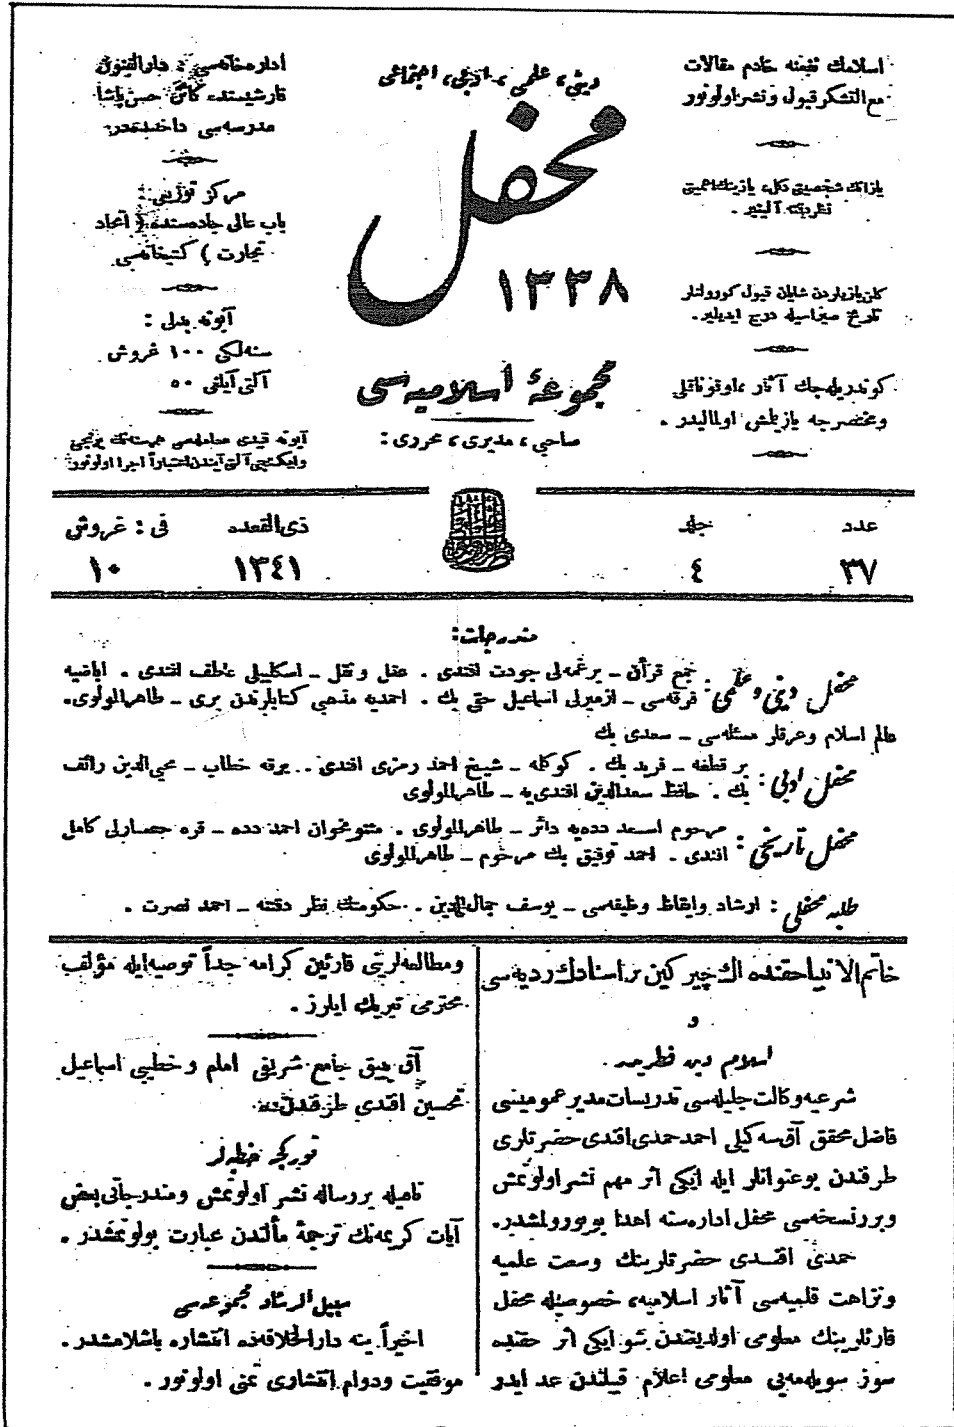 اسلامك نفعنه خادم مقالات
مع التشكر قبول و نشر اولونور
يازانك شخصيتى دكل، يازينك اهميتى
نظر دقته آلينير.
كلن يازيلردن شايان قبول كورولنلر
تاريخ صيراسيله درج ايديلير.
كوندريله‌جك آثار، اوقوناقلى
و مختصرجه يازيلمش اولماليدر.
دينى، علمى، ادبى، اجتماعى
محفل
١٣٣٨
مجموعهٔ اسلاميه‌سى
صاحبى، مديرى، محررى:
اداره‌خانه‌سى: دارالفنون
قارشيسنده كائن حسن پاشا
مدرسه‌سى داخلنده‌در.
مركز توزيعى:
باب عالى جاده‌سنده (اتحاد
تجارت) كتبخانه‌سى
آبونه بدلى:
سنه‌لكى ١٠٠ غروش
آلتى آيلغى ٥٠
آبونه قيدى معامله‌سى هر سنه‌نك برنجى
وايكنجى آلتى آيندن اعتباراً اجرا اولونور.
عدد
٣٧
جلد
٤
ذى القعده
١٣٤١
فى: غروش
١٠
مندرجات:
محفل دينى و علمى: جمع قرآن ـ برغمه‌لى جودت افندى. عقل و نقل ـ اسكليپلى عاطف افندى. اباضيه
فرقه‌سى ـ ازميرلى اسماعيل حقى بك. احمديه مذهبى كتابلرندن برى ـ طاهر المولوى.
عالم اسلام و عرقلر مسئله‌سى ـ سعدى بك
محفل ادبى: بر قطعه ـ فريد بك. كوكله ـ شيخ احمد رمزى افندى.. برقه خطاب ـ محيى الدين رائف
بك. حافظ سعد الدين افندى‌يه ـ طاهر المولوى
محفل تاريخى: مرحوم اسعد دده‌يه دائر ـ طاهر المولوى. مثنويخوان احمد دده ـ قره حصارلى كامل
افندى. احمد توفيق بك مرحوم ـ طاهر المولوى
طلبه محفلى: ارشاد وايقاظ وظيفه‌سى ـ يوسف جمال الدين. حكومتك نظر دقتنه ـ احمد نصرت.
خاتم الانبيا حقنده اك چيركين بر اسنادك رديه‌سى
و
اسلام دين فطريدر.
شرعيه وكالت جليله‌سى تدريسات مدير عموميسى
فاضل محقق آق‌سه‌كيلى احمد حمدى افندى حضرتلرى
طرفندن بو عنوانلر ايله ايكى اثر مهم نشر اولونمش
و برر نسخه‌سى محفل اداره‌سنه اهدا بويورولمشدر.
حمدى افندى حضرتلرينك وسعت علميه
و نزاهت قلبيه‌سى آثار اسلاميه، خصوصيله محفل
قارئلرينك معلومى اولديغندن شو ايكى اثر حقنده
سوز سويله‌مه‌يى معلومى اعلام قبيلندن عد ايدر
و مطالعه‌لرينى قارئين كرامه جداً توصيه ايله مؤلف
محترمى تبريك ايلرز.
آق بييق جامع شريفى امام و خطيبى اسماعيل
تحسين افندى طرفندن:
توركجه خطبه‌لر
ناميله بر رساله نشر اولونمش و مندرجاتى بعض
آيات كريمه‌نك ترجمهٔ مآلندن عبارت بولونمشدر.
سبيل الرشاد مجموعه‌سى
اخيراً ينه دار الخلافه‌ده انتشاره باشلامشدر.
موفقيت و دوام انتشارى تمنى اولونور.